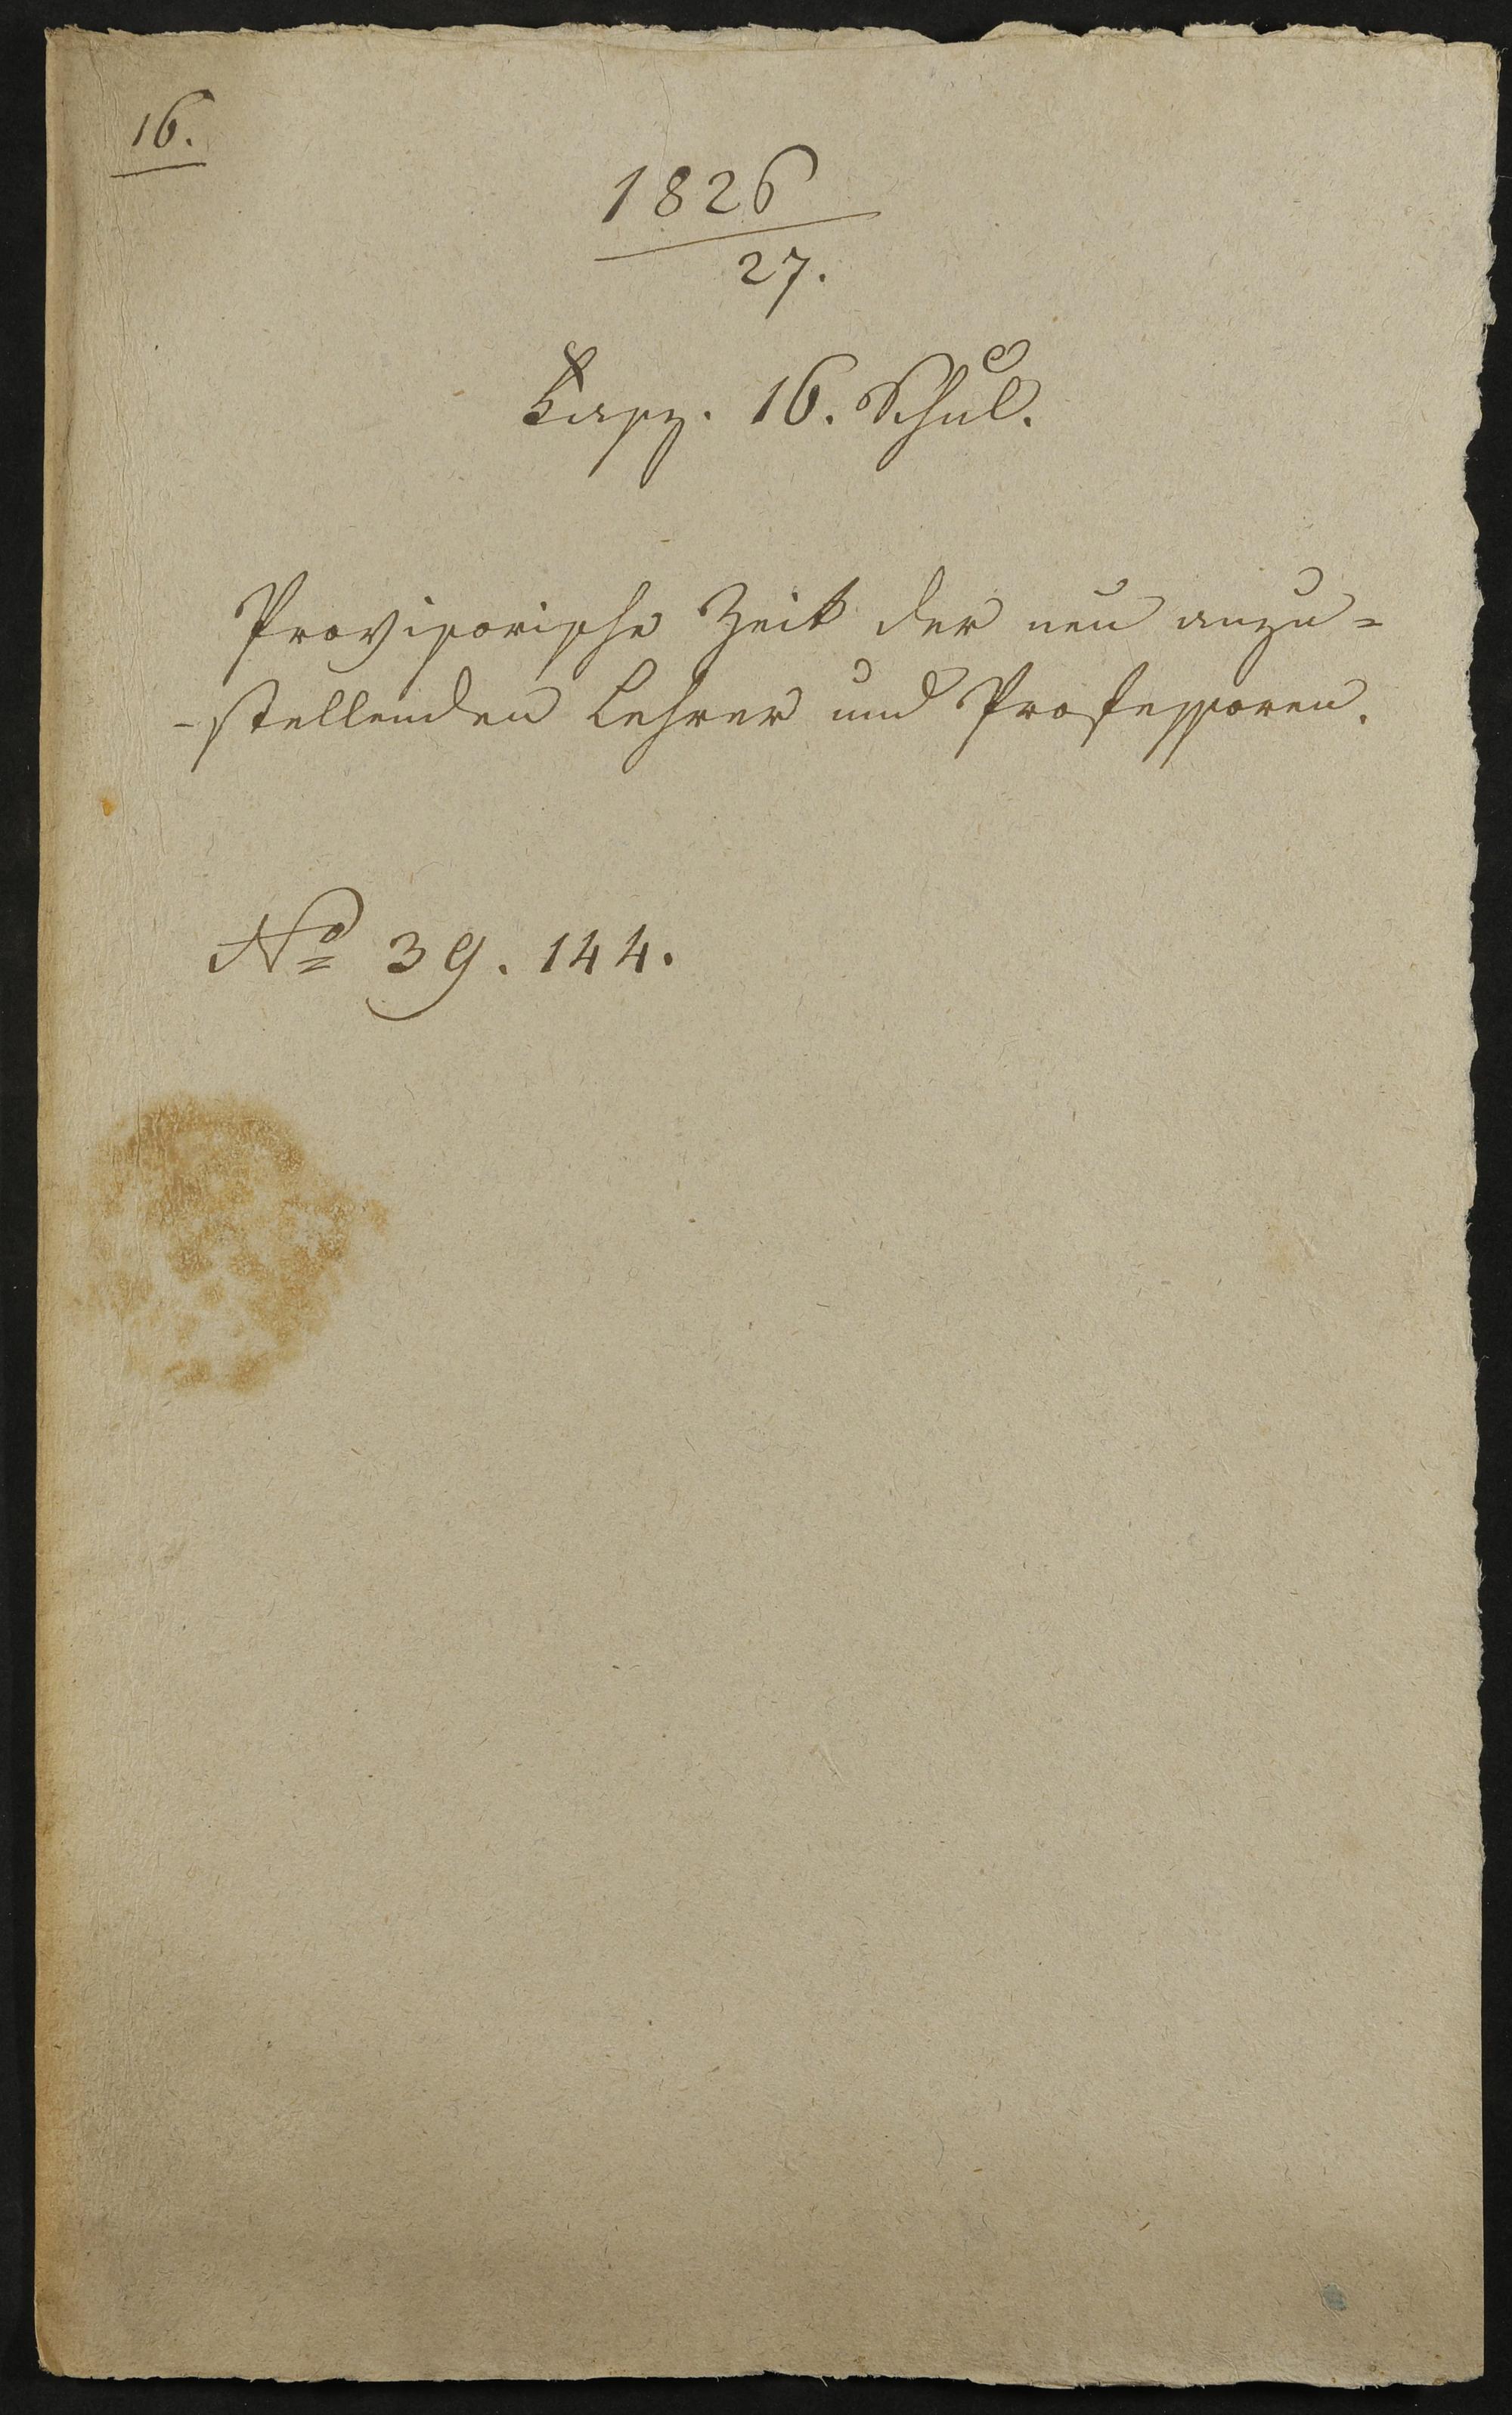 16.
1826
27.
Fasz. 16. Schul.
Provisorische Zeit der neu anzu=
-stellenden Lehrer und Professoren.
No 39. 144.